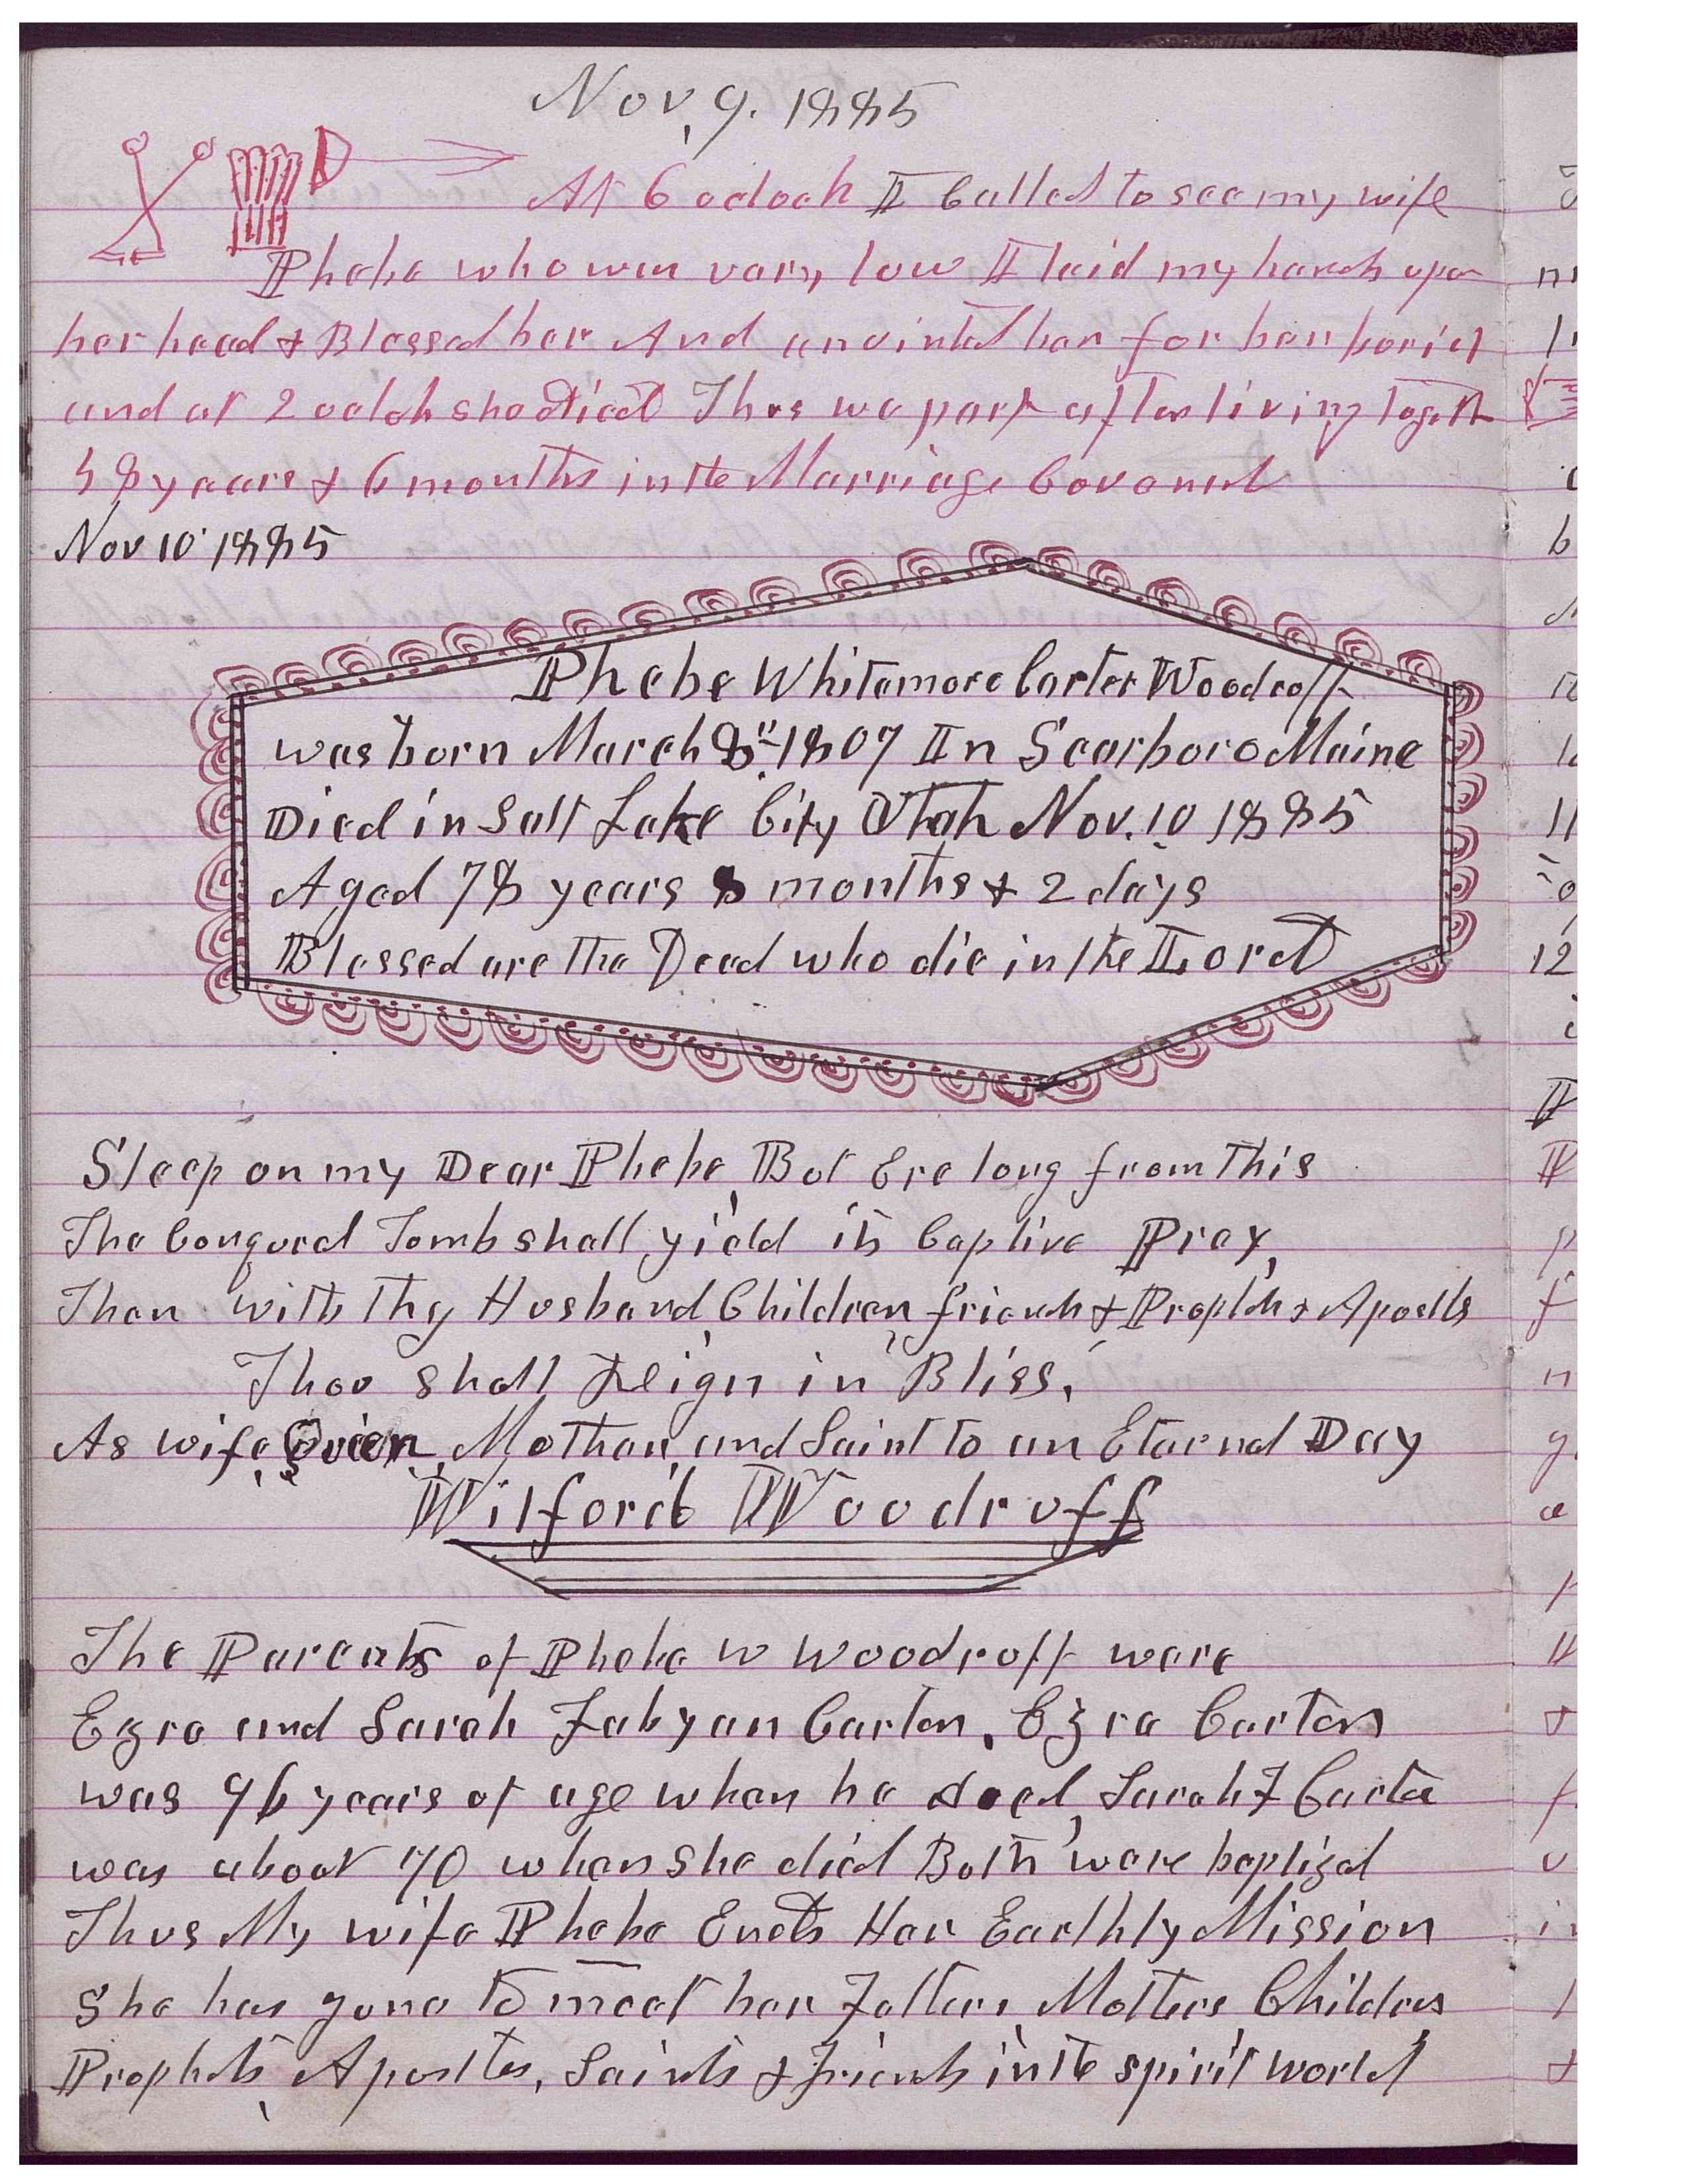 Nov, 9. 1885
At 6 oclock I Called to see my wife
Phebe who was vary low I laid my hands upon
her head & Blessed her And anointed her for her buriel
and at 2 oclok she died Thus we part after living togeth
48 years & 6 months in the Marriage Covenant
Nov 10 1885
Phebe Whitemore Carter Woodruff
was born March 8th 1807 In Scarboro Maine
Died in Salt Lake City Utah Nov. 10 1885
Aged 78 years 8 months & 2 days
Blessed are the Dead who die in the Lord
Sleep on my Dear Phebe, But Ere long from this
The Conqured Tomb shall yield its Captive Prey,
Then with Thy Husband, Children, friends & Prophets & Apostls
Thou shall Reign in Bliss,
As wife, Queen, Mother, and Saint to an Eternal Day
Wilford Woodruff
The Parents of Phebe W Woodruff were
Ezra and Sarah Fabyan Carter. Ezra Carter
was 96 years of age when he died, Sarah F Carter
was about 70 when she died Both were baptized
Thus My wife Phebe Ends Her Earthly Mission
She has gone to meet her Father, Mother, Children
Prophets, Apostles, Saints & Friends in the spirit world